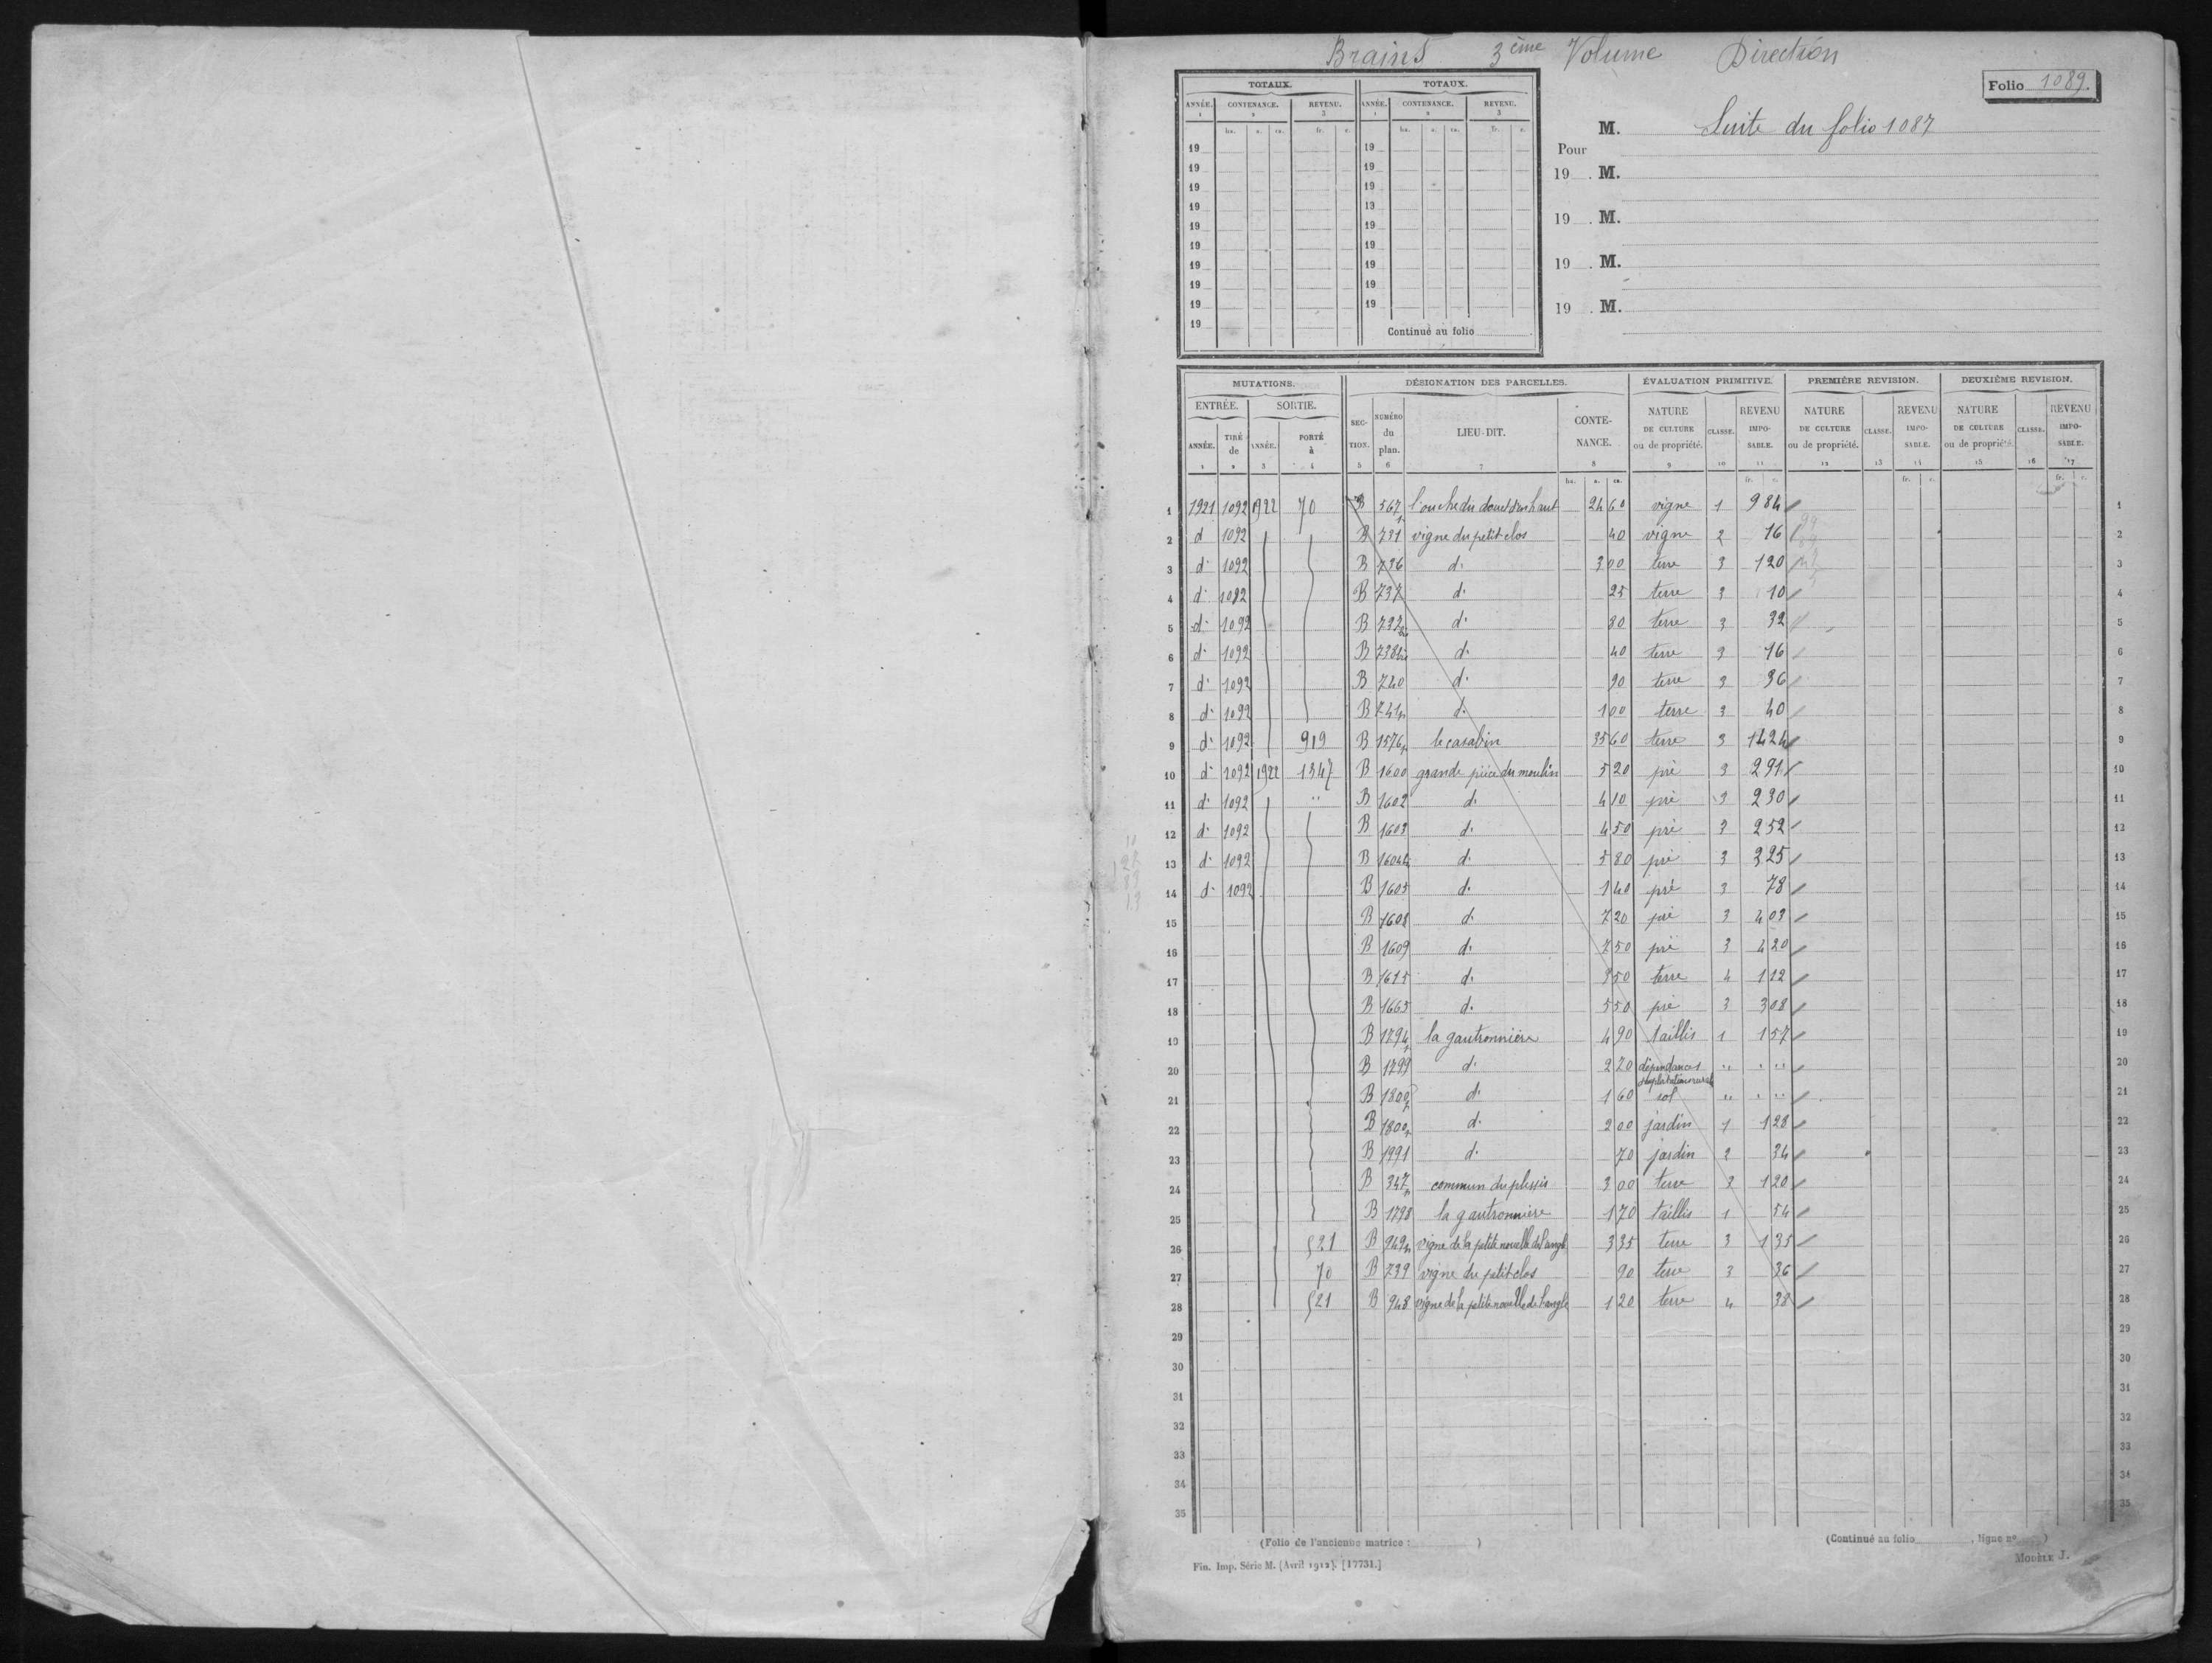 Brains 3ème Volume Direction
Folio 1089.
TOTAUX. TOTAUX.
ANNÉE. CONTENANCE. REVENU. ANNÉE. CONTENANCE. REVENU.
1 2 3 1 2 3
ha. a. ca. fr. c. ha. a. ca. fr. c.
19 19
19 19
19 19
19 13
19 19
19 19
19 19
19 19
19 19
19 Continué au folio
M. Suite du folio 1087
Pour
19 . M.
19 . M.
19 . M.
19 . M.
MUTATIONS. DÉSIGNATION DES PARCELLES. ÉVALUATION PRIMITIVE. PREMIÈRE REVISION. DEUXIÈME REVISION.
ENTRÉE. SORTIE. SECTION. NUMÉRO du plan. LIEU-DIT. CONTENANCE. NATURE DE CULTURE ou de propriété. CLASSE. REVENU IMPOSABLE. NATURE DE CULTURE ou de propriété. CLASSE. REVENU IMPOSABLE. NATURE DE CULTURE ou de propriété. CLASSE. REVENU IMPOSABLE.
ANNÉE. TIRÉ de ANNÉE. PORTÉ à
1 2 3 4 5 6 7 8 9 10 11 12 13 14 15 16 17
ha. a. ca. fr. c. fr. c. fr. c.
1 1921 1092 1922 70 B 567 l'ouche du douet d'en haut 24 60 vigne 1 9 84 1
2 d 1092 B 731 vigne du petit clos 40 vigne 2 16 2
3 d° 1092 B 736 d° 3 00 terre 3 1 20 3
4 d° 1092 B 737 d° 25 terre 3 10 4
5 d° 1092 B 732 d° 80 terre 3 32 5
6 d° 1092 B 738 bis d° 40 terre 3 16 6
7 d° 1092 B 740 d° 90 terre 3 36 7
8 d° 1092 B 741p d° 1 00 terre 3 40 8
9 d° 1092 919 B 1576p le casabin 35 60 terre 3 14 24 9
10 d° 1092 1922 1347 B 1600 grande pièce du moulin 5 20 pré 3 2 91 10
11 d° 1092 " B 1602 d° 4 10 pré 3 2 30 11
12 d° 1092 B 1603 d° 4 50 pré 3 2 52 12
13 d° 1092 B 1604 d° 5 80 pré 3 3 25 13
14 d° 1092 B 1605 d° 1 40 pré 3 78 14
15 B 1608 d° 7 20 pré 3 4 03 15
16 B 1609 d° 7 50 pré 3 4 20 16
17 B 1615 d° 9 50 terre 4 1 12 17
18 B 1665 d° 5 50 pré 3 3 08 18
19 B 1794p la gautronnière 4 90 taillis 1 1 57 19
20 B 1799 d° 2 20 dépendances d'exploitation rurale " " " 20
21 B 1800p d° 1 60 sol " " " 21
22 B 1800p d° 2 00 jardin 1 1 28 22
23 B 1991 d° 70 jardin 2 34 23
24 B 347p commun du plessis 3 00 terre 3 1 20 24
25 B 1798 la gautronnière 1 70 taillis 1 54 25
26 521 B 949p vigne de la petite nouelle de l'angle 3 35 terre 3 1 35 26
27 70 B 739 vigne du petit clos 90 terre 3 36 27
28 521 B 948 vigne de la petite nouelle de l'angle 1 20 terre 4 38 28
29 29
30 30
31 31
32 32
33 33
34 34
35 35
(Folio de l'ancienne matrice : ) (Continué au folio , ligne n° )
Fin. Imp. Série M. (Avril 1912). [17731.] MODÈLE J.